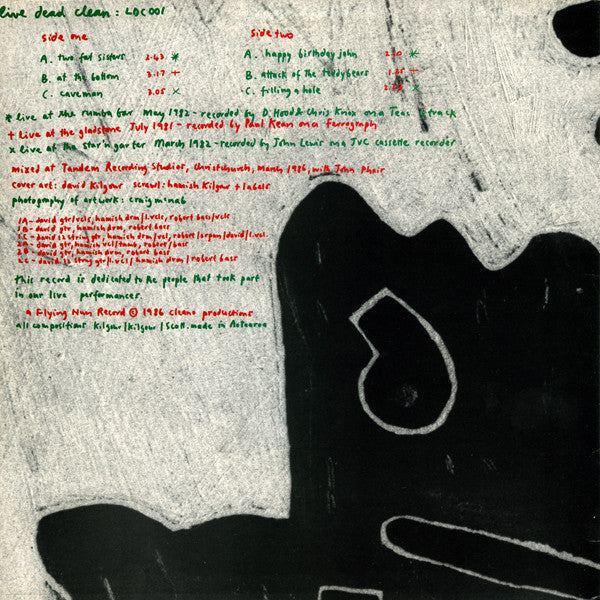 live dead clean : LDC001
side one
A. two fat sisters 2.43 *
B. at the bottom 3.17 +
C. caveman 3.05 x
side two
A. happy birthday john 2.20 *
B. attack of the teddybears 1.25 +
C. filling a hole x
* live at the rumba bar May 1982 - recorded by D. Hood & Chris Knox on a Teac track
+ live at the gladstone July 1981 - recorded by Paul Kean on a Ferrograph
x live at the star 'n garter March 1982 - recorded by John Lewis on a JVC cassette recorder
mixed at Tandem Recording Studios, Christchurch, March 1986, with John Phair
cover art: david Kilgour scrawl: hamish Kilgour + labels
photography of artwork: craig mcnab
1A - david gtr/vcls, hamish drm/l.vcls, robert bass/vcls
1B - david gtr, hamish drm, robert bass
1C - david 12 string gtr, hamish drm/vcl, robert/organ/david/l.vcl.
2A - david gtr, hamish vcl/tamb, robert/bass
2B - david gtr, hamish drm, robert bass
2C - david 12 string gtr/l.vcl/ hamish drm/robert bass
this record is dedicated to the people that took part
in our live performances
a Flying Nun Record © 1986 cleano productions
all compositions Kilgour/Kilgour/Scott. made in Aotearoa